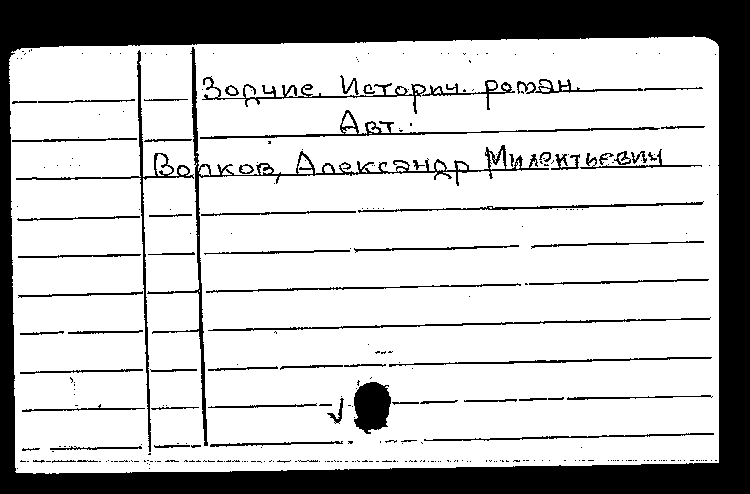 Зодчие. Историч. роман.
Авт.:
Волков, Александр Милентьевич